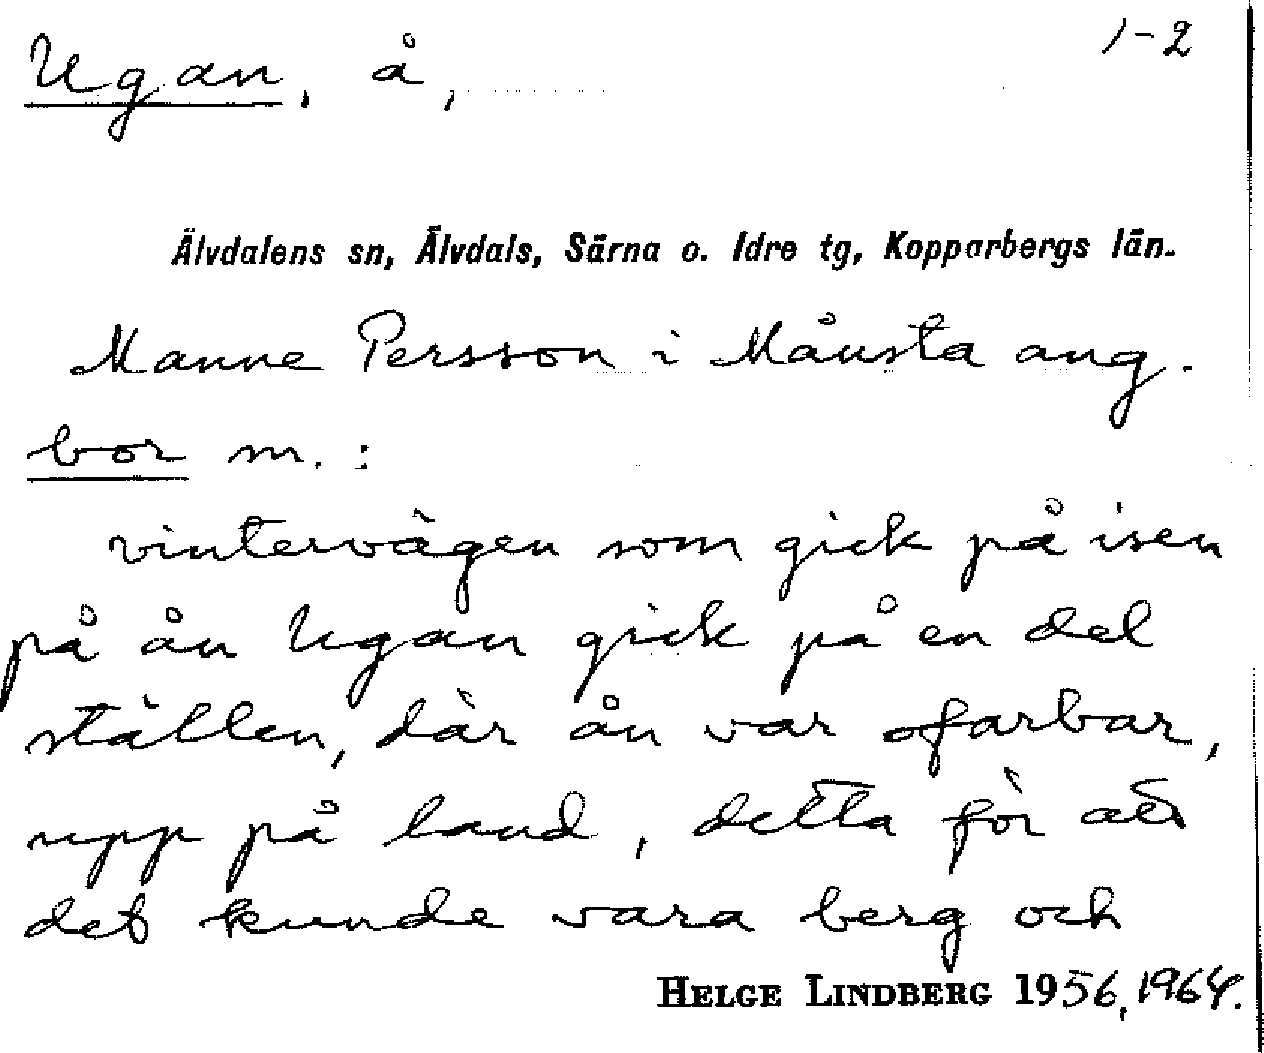 Ugan, å,
1-2
Älvdalens sn, Älvdals, Särna o. Idre tg, Kopparbergs län.
Manne Persson i Månsta ang.
bor m. :
vintervägen som gick på isen
på ån Ugan gick på en del
ställen, där ån var ofarbar,
upp på land, detta för att
det kunde vara berg och
HELGE LINDBERG 1956, 1964.